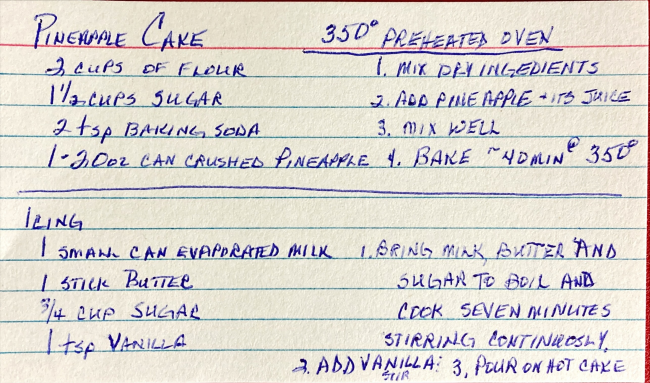 PINEAPPLE CAKE 350° PREHEATED OVEN
2 CUPS OF FLOUR 1. MIX DRY INGEDIENTS
1 1/2 CUPS SUGAR 2. ADD PINEAPPLE + ITS JUICE
2 tsp BAKING SODA 3. MIX WELL
1-20oz CAN CRUSHED PINEAPPLE 4. BAKE ~40MIN @ 350°
ICING
1 SMALL CAN EVAPORATED MILK 1. BRING MILK, BUTTER AND
1 STICK BUTTER SUGAR TO BOIL AND
3/4 CUP SUGAR COOK SEVEN MINUTES
1 tsp VANILLA STIRRING CONTINUOSLY.
2. ADD VANILLA: STIR 3. POUR ON HOT CAKE